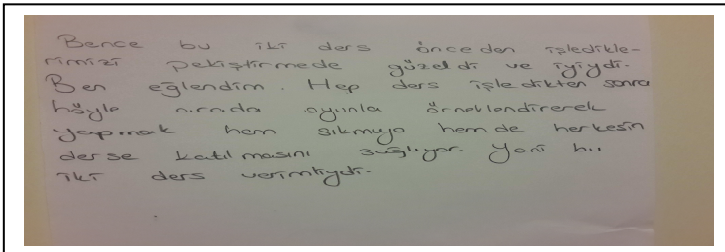 Bence bu iki ders önceden işledikle-
rimizi pekiştirmede güzeldi ve iyiydi.
Ben eğlendim. Hep ders işledikten sonra
böyle oyunla örneklendirerek
yapmak hem sıkmıyo hem de herkesin
derse katılmasını sağlıyor. Yani
iki ders verimliydi.